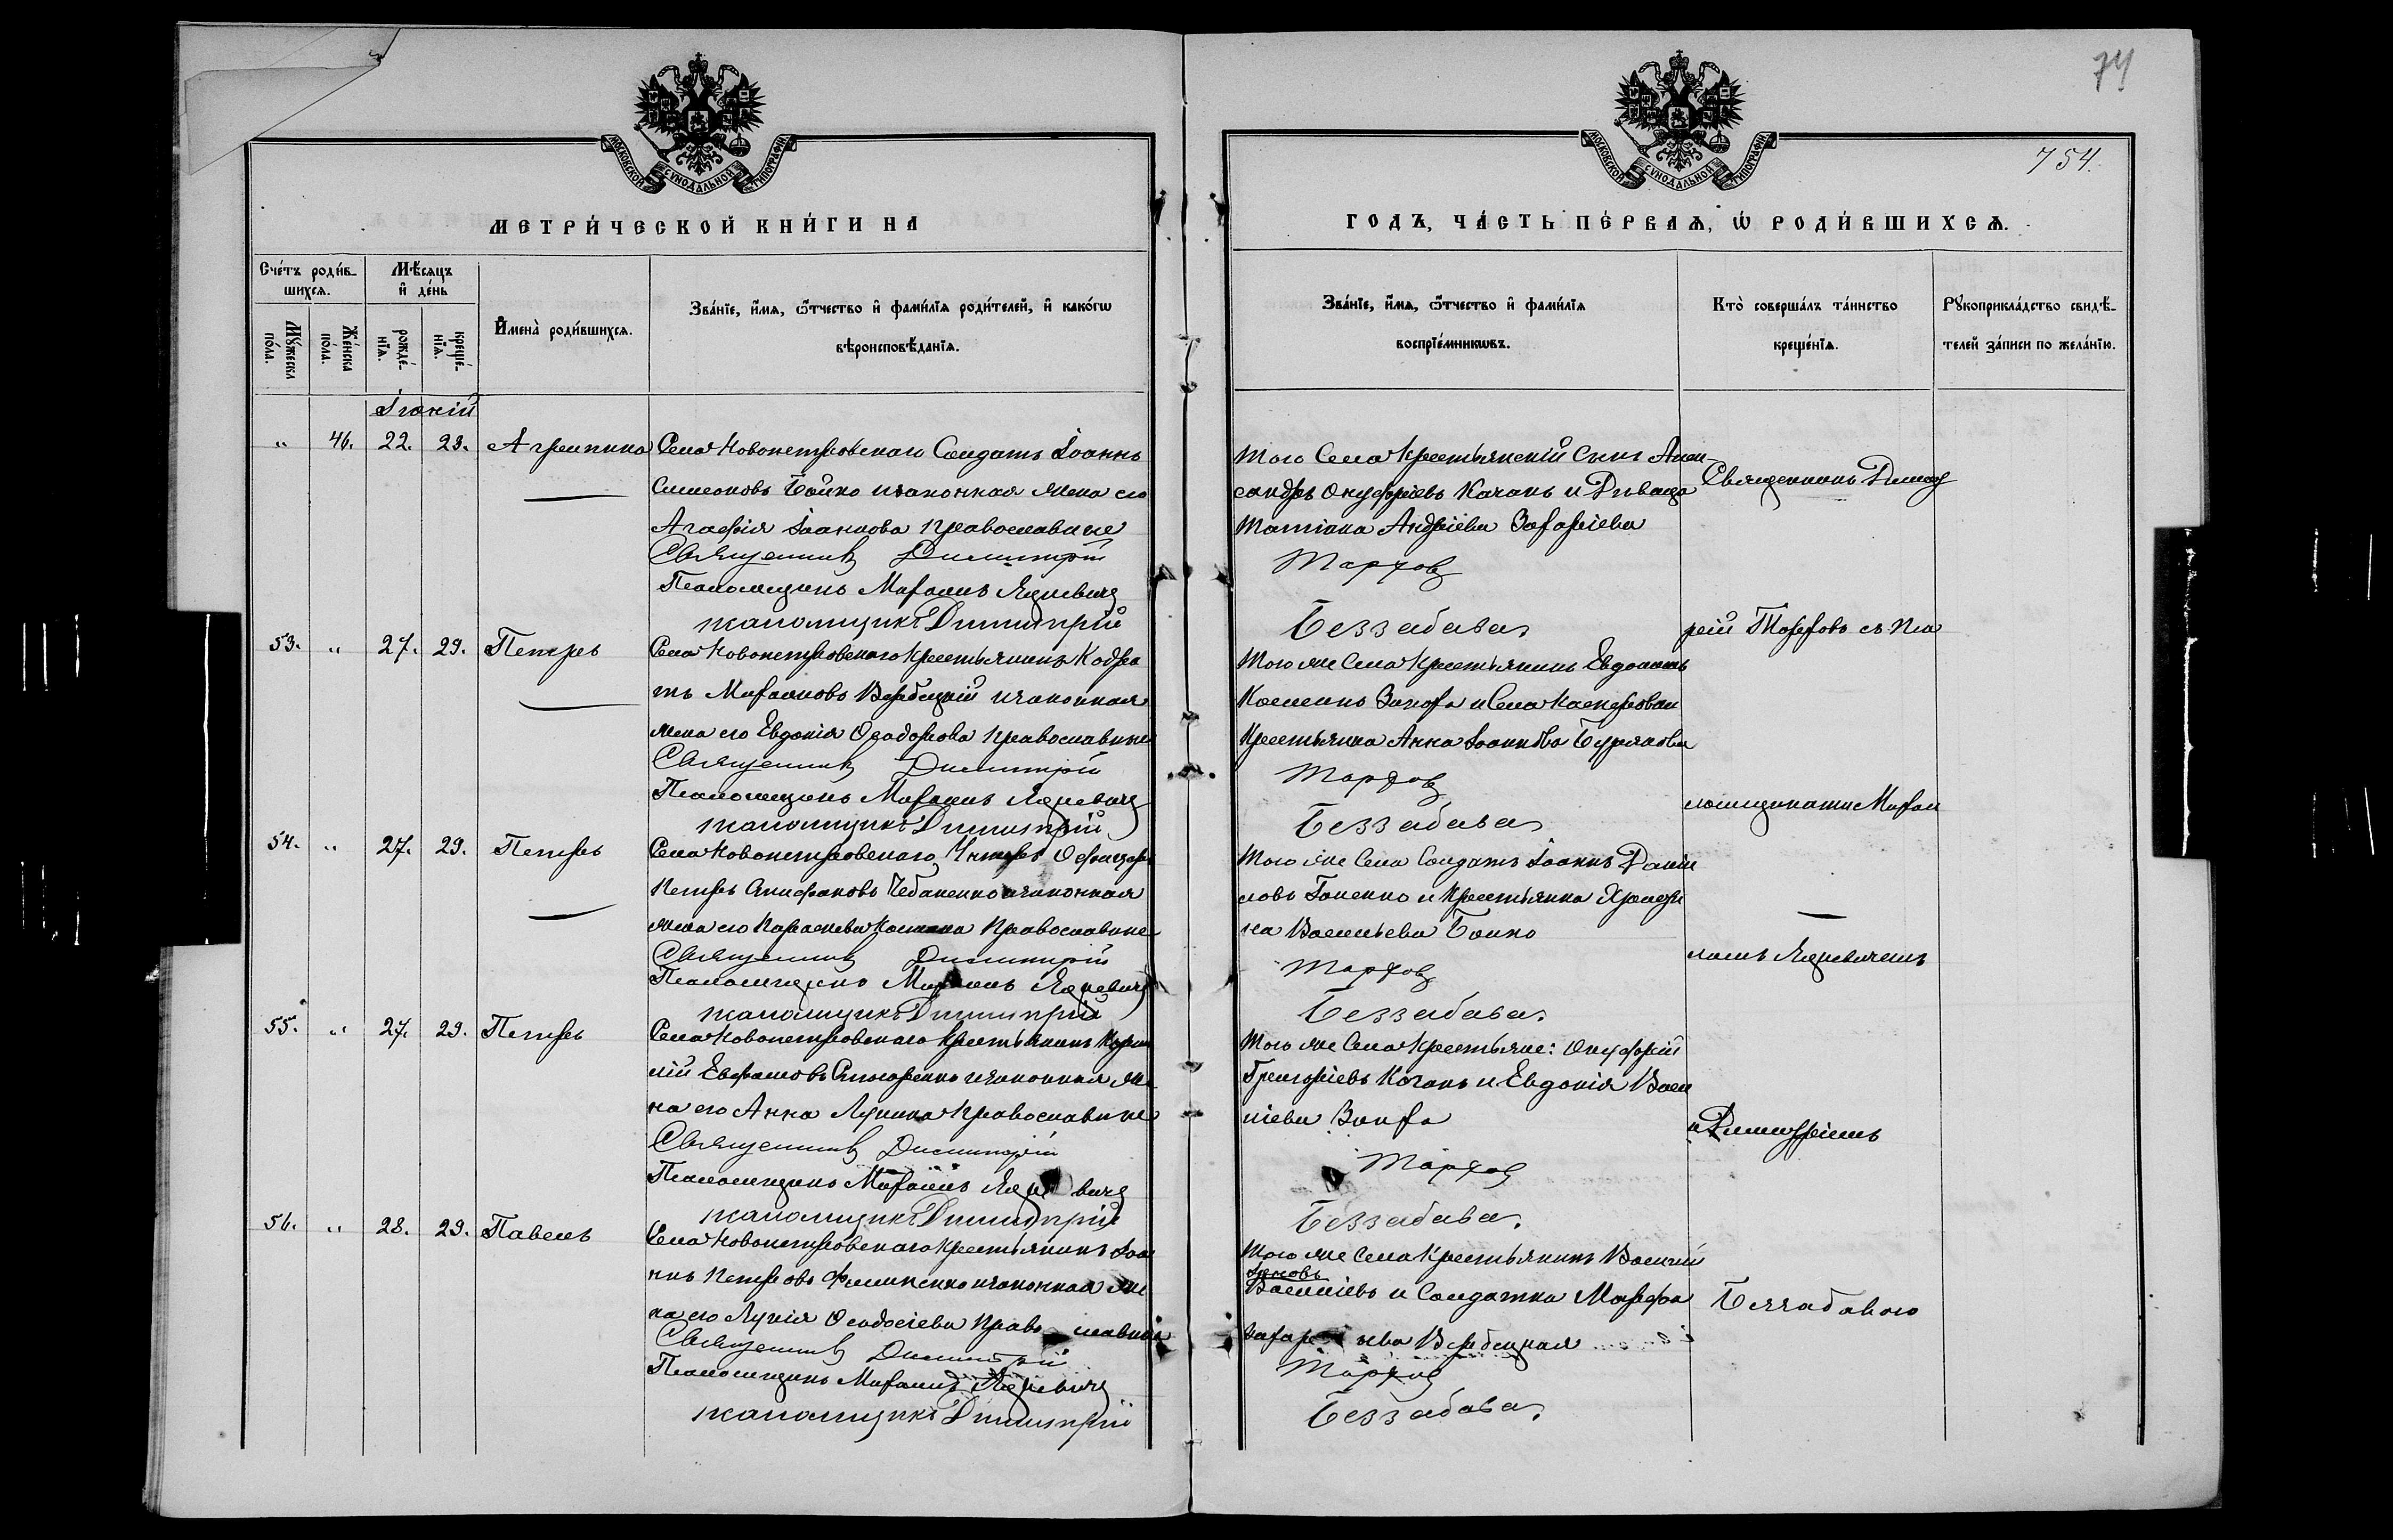 74
754.
МОСКОВСКОЙ СѴНОДАЛЬНОЙ ТИПОГРАФІИ
МОСКОВСКОЙ СѴНОДАЛЬНОЙ ТИПОГРАФІИ
МЕТРИ́ЧЕСКОЙ КНИ́ГИ НА
ГОДЪ, ЧА́СТЬ ПЕ́РВАѦ, Ѡ҆ РОДИ́ВШИХСѦ.
Сче́тъ роди́в-
шихсѧ.
Мѣ́сяцъ
и҆ де́нь
Мꙋ́жеска
по́ла.
Же́нска
по́ла.
рожде́-
нїѧ.
креще́-
нїѧ.
И҆мена̀ роди́вшихсѧ.
Зва́нїе, и҆́мѧ, ѻ҆́тчество и҆ фами́лїѧ роди́телей, и҆ како́гѡ
вѣроисповѣ́данїѧ.
Зва́нїе, и҆́мѧ, ѻ҆́тчество и҆ фами́лїѧ
воспрїе́мникѡвъ.
Кто̀ соверша́лъ та́инство
креще́нїѧ.
Рꙋкоприкла́дство свидѣ́-
телей за́писи по жела́нїю.
Іюній
" 46. 22. 23. Агрипина
Села Новопетровскаго Солдатъ Іоаннъ
Симеоновъ Бойко и законная жена его
Агафія Іоаннова православные
Священникъ Димитрій
Псаломщикъ Михаилъ Яцкевичъ
псаломщикъ Димитрій
Того Села Крестьянскій Сынъ Алек-
сандръ Онуфріевъ Качанъ и Дѣвица
Татіана Андріева Захаріева
Тарховъ
Беззабава
Священникъ Димит
рій Тарховъ съ Пса
ломщиками Михаи
ломъ Яцкевичемъ
и Димитріемъ
Беззабавою
53. " 27. 29. Петръ
Села Новопетровскаго Крестьянинъ Кодра
тъ Михаиловъ Вербецкій и законная
жена его Евдокія Ѳеодорова православные
Священникъ Димитрій
Псаломщикъ Михаилъ Яцкевичъ
псаломщикъ Димитрій
Того же Села Крестьянинъ Евдокимъ
Крестьянка Анна Іоаннова
Тарховъ
Беззабава
54. " 27. 29. Петръ
Села Новопетровскаго Унтеръ Офицеръ
Петръ Чебаненко и законная
жена его Параскева православные
Священникъ Димитрій
Псаломщикъ Михаилъ Яцкевичъ
псаломщикъ Димитрій
Того же Села Солдатъ Іоаннъ Даніи
ловъ Гоненко и Крестьянка Христи
на Васильева Бойко
Тарховъ
Беззабава.
55. " 27. 29. Петръ
Села Новопетровскаго Крестьянинъ Корни
лій и законная же
на его Анна Лукина православные
Священникъ Димитрій
Псаломщикъ Михаилъ Яцкевичъ
псаломщикъ Димитрій
Того же Села Крестьяне: Онуфрій
Григоріевъ Качанъ и Евдокія Васи
ліева
Тарховъ
Беззабава.
56. " 28. 29. Павелъ
Села Новопетровскаго Крестьянинъ Іоан
нъ Петровъ Филипенко и законная же
на его Лукія Ѳеодосіева православные
Священникъ Димитрій
Псаломщикъ Михаилъ Яцкевичъ
псаломщикъ Димитрій
Того же Села Крестьянинъ Василій
Василіевъ и Солдатка Марфа
Вербецкая
Тарховъ
Беззабава.